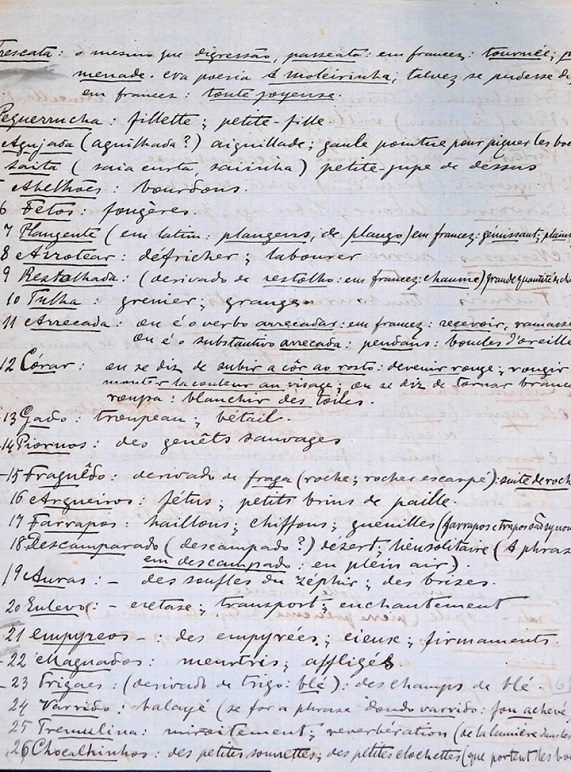 rescata: o mesmo que digressão, passeata: em francez: tournée;
menade. Na poesia A moleirinha, talvez se pudesse
em francez: toute joyeuse.
Pequerrucha: fillette; petite-fille
Agujada (aguilhada?) aiguillade; gaule pointue pour piquer les
saita (saia curta sainha) petite-jupe de dessus
Abelhões: bourdons.
6 Fêtos fougères.
7 Plangente (em latim: plangens, de plango) em francez: gémissant;
8 Arrotear: défricher; labourer
9 Restolhada: (derivado de restolho: em francez: chaume)
10 Tulha: grenier; grange
11 Arrecada: ou é o verbo arrecadar: em francez: recevoir, ramasse
ou é o substantivo arrecada: pendans: boucles d'oreille
12 Córar: ou se diz de subir a côr ao rosto: devenir rouge; rougir
monter la couleur au visage; ou se diz de tornar branca
roupa: blanchir des toiles.
13 Gado: troupeau; bétail
14 Piornos: des genêts sauvages
15 Fraguêdo: derivado de fraga (roche; rocher escarpé): suite de roch
16 Argueiros: fétus; petits brins de paille.
17 Farrapos: haillons; chiffons; guenilles (farrapos e trapos
18 Descamparado (descampado?) dezert; lieu solitaire (A phras
em descampado: en plein air).
19 Auras: - des souffles du zéphir; des brizes.
20 Enlevo: - extase; transport; enchantement
21 empyreos -: des empyrées; cieux; firmaments
22 Magoados: meurtris; affligés
23 Trigaes: (derivado de trigo: blé): des champs de blé.
24 Varrido: balayé (se for a phrase doudo varrido: fou achevé
25 Tremulina: miroitement; réverbération (de la lumière
26 Chocalhinhos: des petites sonnettes; des petites clochettes (que portent les